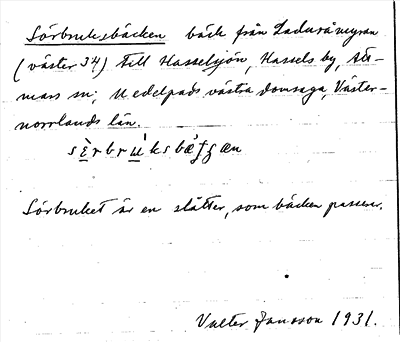 Sörbruksbäcken bäck från Laduråmyran
(väster 34) till Hasselsjön, Hassels by, Att-
mars sn; Medelpads västra domsaga, Väster-
norrlands län.
Sörbruket är en slåtter, som bäcken passerar.
Valter Jansson 1931.